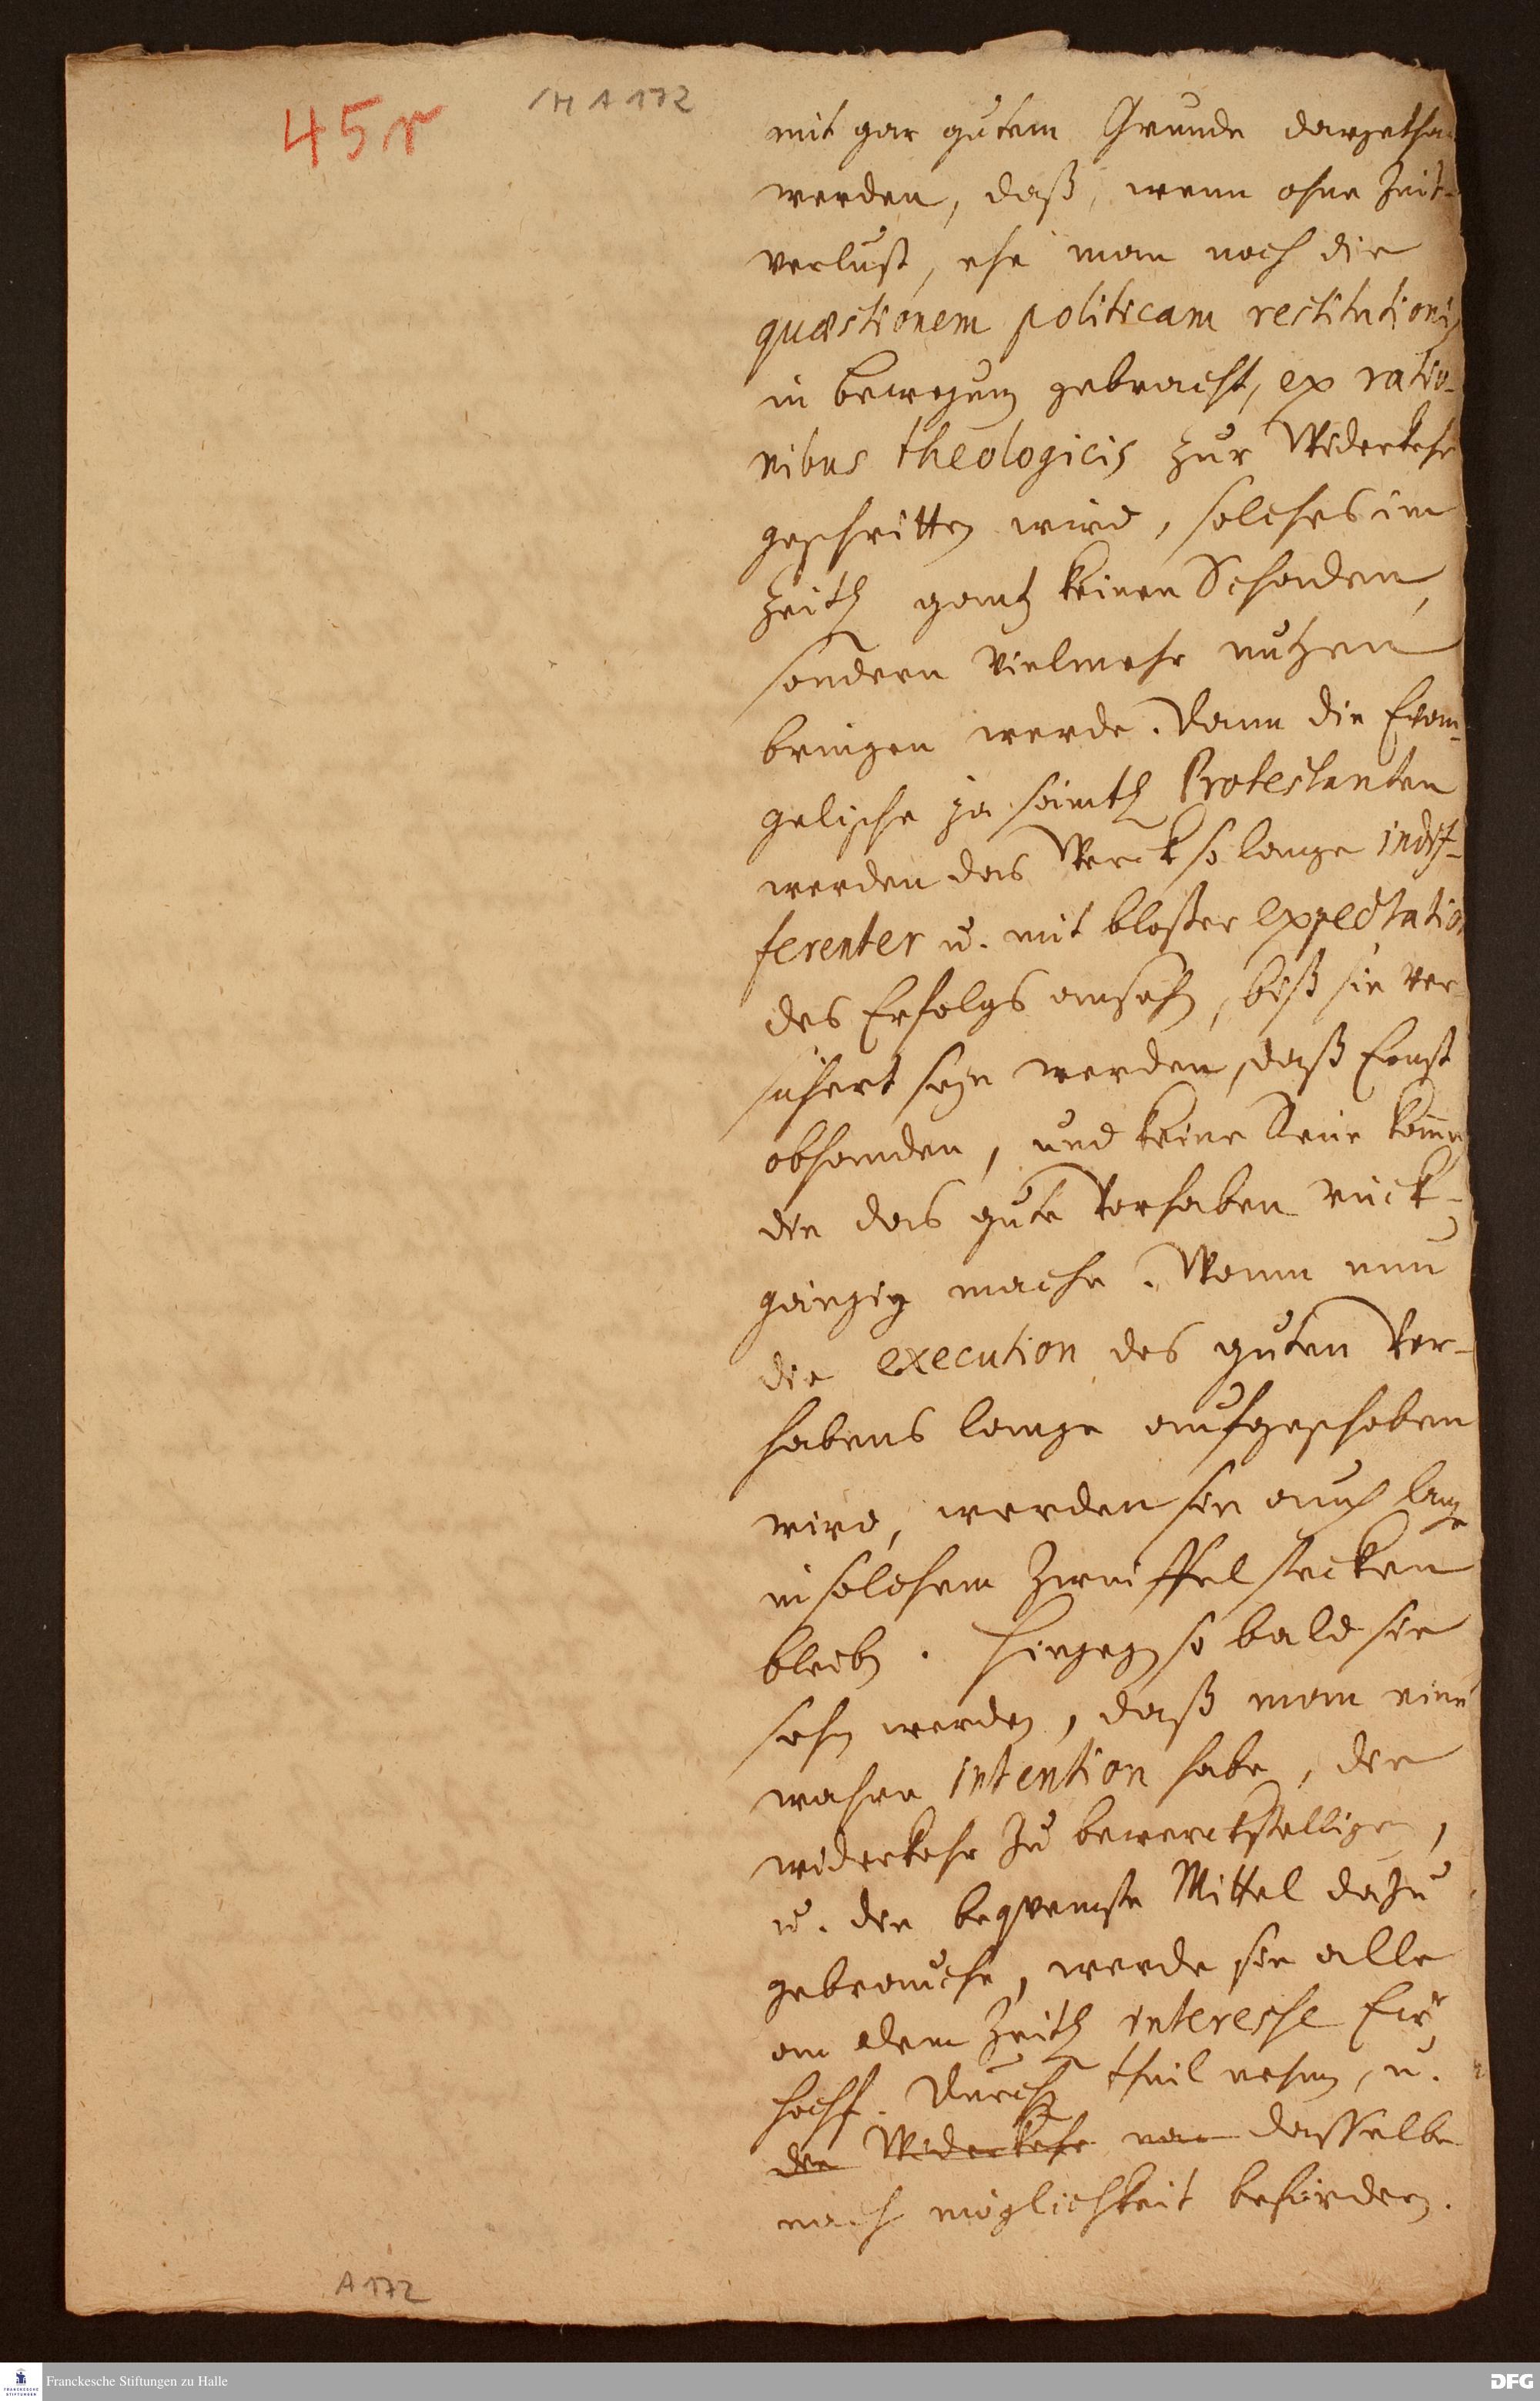 45r
H A 172
mit gar gutem Grunde dargetha
werden, daß, wenn ohne Zeit-
verlust, ehe man noch die
quæstionem politicam restitutionis
in bewegung gebracht, ex ratio-
nibus theologicis zur Widerkehr
geschritten wird, solches im
Zeitz gantz keinen Schaden,
sondern vielmehr nutzen
bringen werde. Dann die Evan-
gelische ja sämtl Protestanten
werden das Werck so lange indif-
ferenter u. mit bloßer expectatio
des Erfolgs ansehn, biß sie ver-
sichert seyn werden, daß Ernst
obhanden, und keine Reue komme
die das gute Vorhaben rück-
gängig mache. Wann nun
die execution des guten Vor-
habens lange aufgeschoben
wird, werden sie auch lange
in solchem Zweiffel stecken
bleibn. Hingegen so bald sie
sehn werden, daß man eine
wahre intention habe, die
widerkehr zu bewerckstelligen,
u. die beqvemste Mittel dazu
gebrauche, werde sie alle
an dem Zeitz interesse Ew
hochf. Durchl theil nehmen, u.
die Widerkehr dasselbe
nach möglichkeit befördern.
A 172
Franckesche Stiftungen zu Halle
DFG